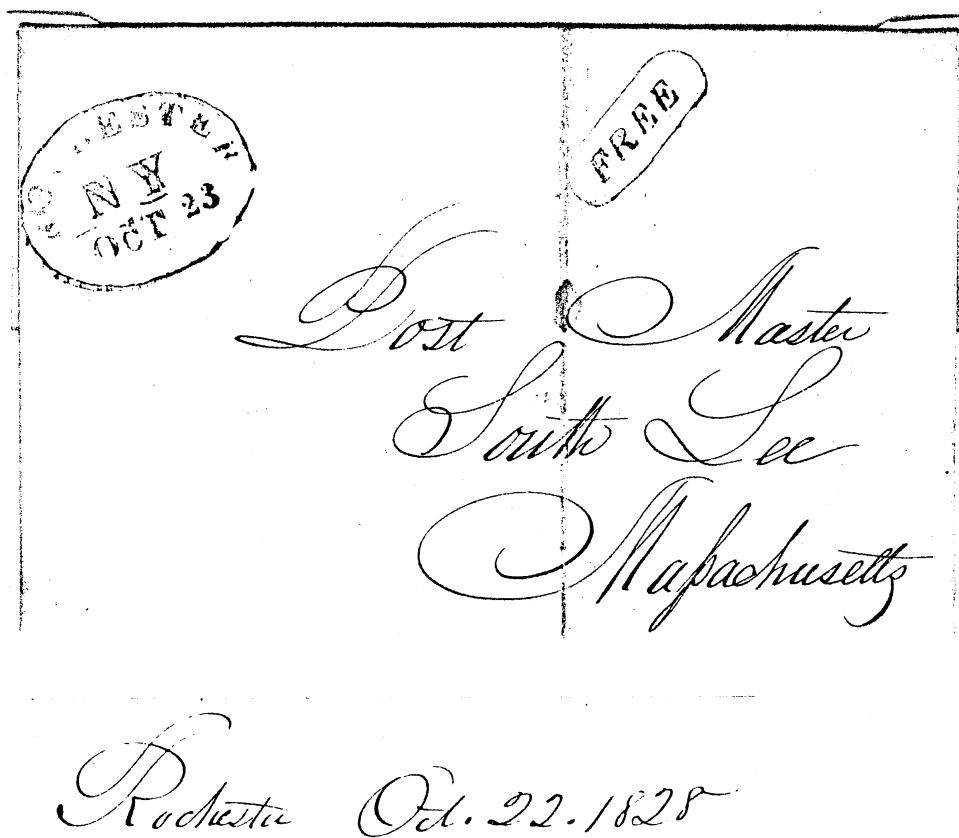 ROCHESTER
NY
OCT 23
FREE
Post Master
South Lee
Maſsachusetts
Rochester Oct. 22. 1828